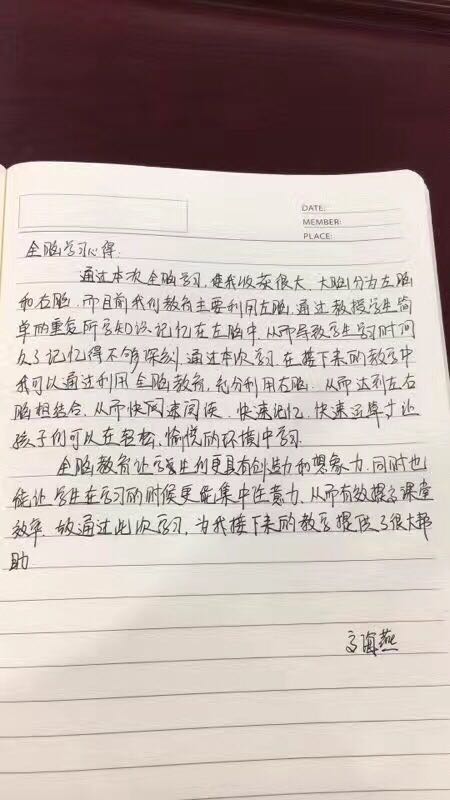 DATE:
MEMBER:
PLACE:
全脑学习心得:
通过本次全脑学习,使我收获很大,大脑分为左脑
和右脑,而目前我们教育主要利用左脑,通过教授学生简
单的重复所学知识记忆在左脑中,从而导致学生学习时间
久了记忆得不够深刻,通过本次学习,在接下来的教学中
我可以通过利用全脑教育,充分利用右脑,从而达到左右
脑相结合,从而快速阅读、快速记忆、快速运算,让
孩子们可以在轻松、愉悦的环境中学习.
全脑教育让学生们更具有创造力和想象力,同时也
能让学生在学习的时候更能集中注意力,从而有效提高课堂
效率,故通过此次学习,为我接下来的教学提供了很大帮
助
高海燕